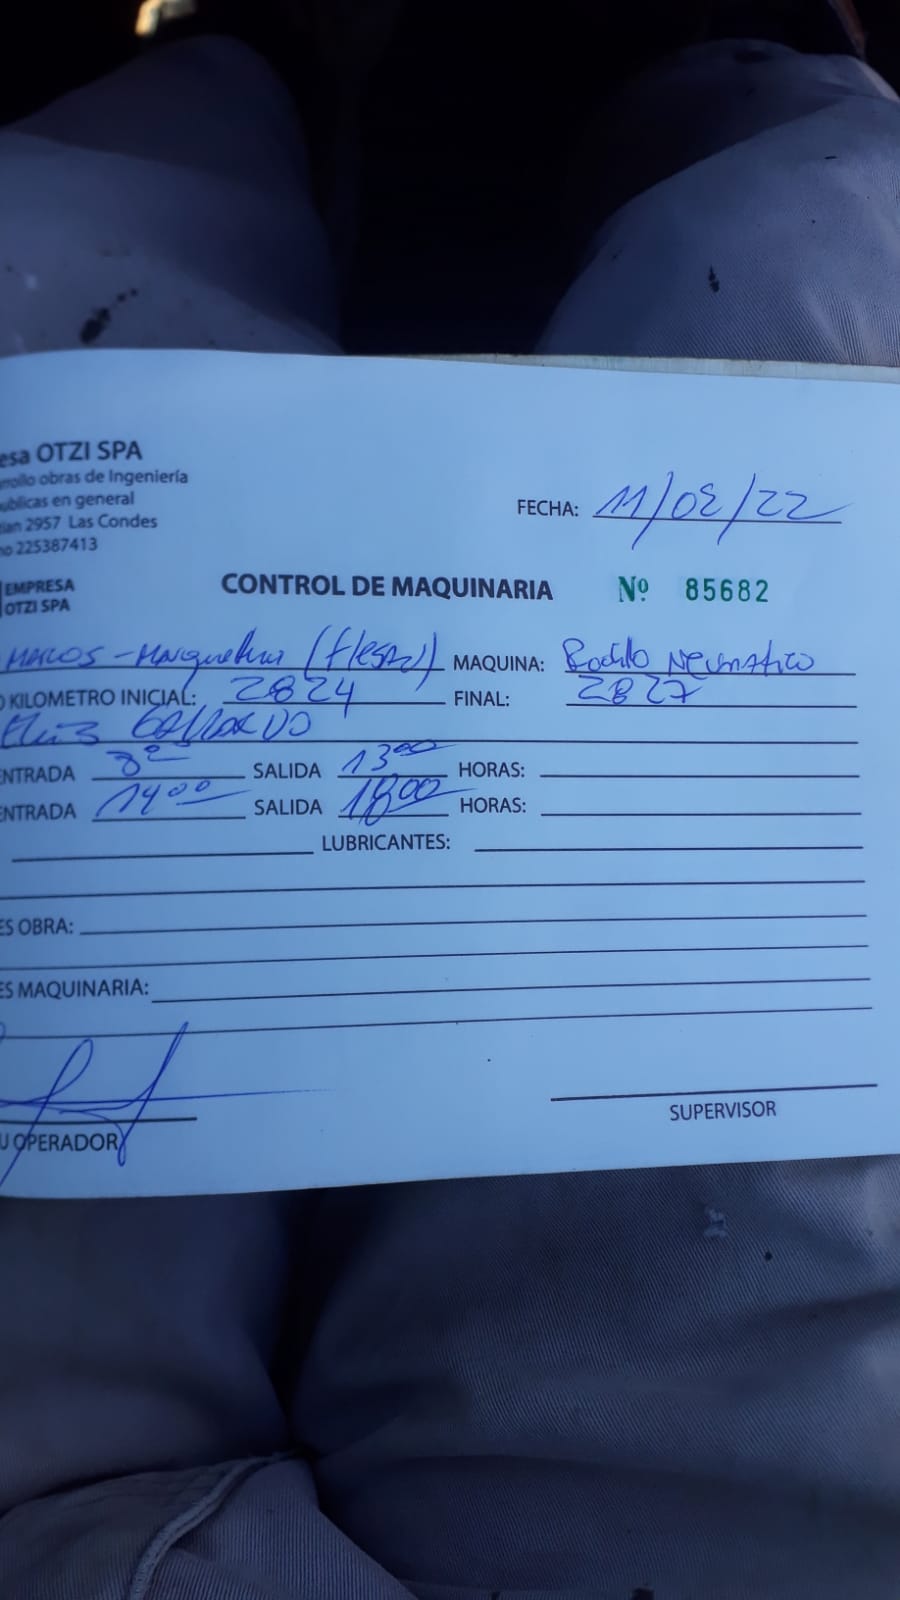 esa OTZI SPA
rrollo obras de Ingeniería
ublicas en general
tian 2957 Las Condes
no 225387413
FECHA: 11/02/22
EMPRESA
OTZI SPA
CONTROL DE MAQUINARIA Nº 85682
MAQUINA: Rodillo Neumatico
O KILOMETRO INICIAL: 2824 FINAL: 2827
GALLARDO
ENTRADA 8°° SALIDA 13°° HORAS:
ENTRADA 14°° SALIDA 18°° HORAS:
LUBRICANTES:
ES OBRA:
ES MAQUINARIA:
U OPERADOR
SUPERVISOR